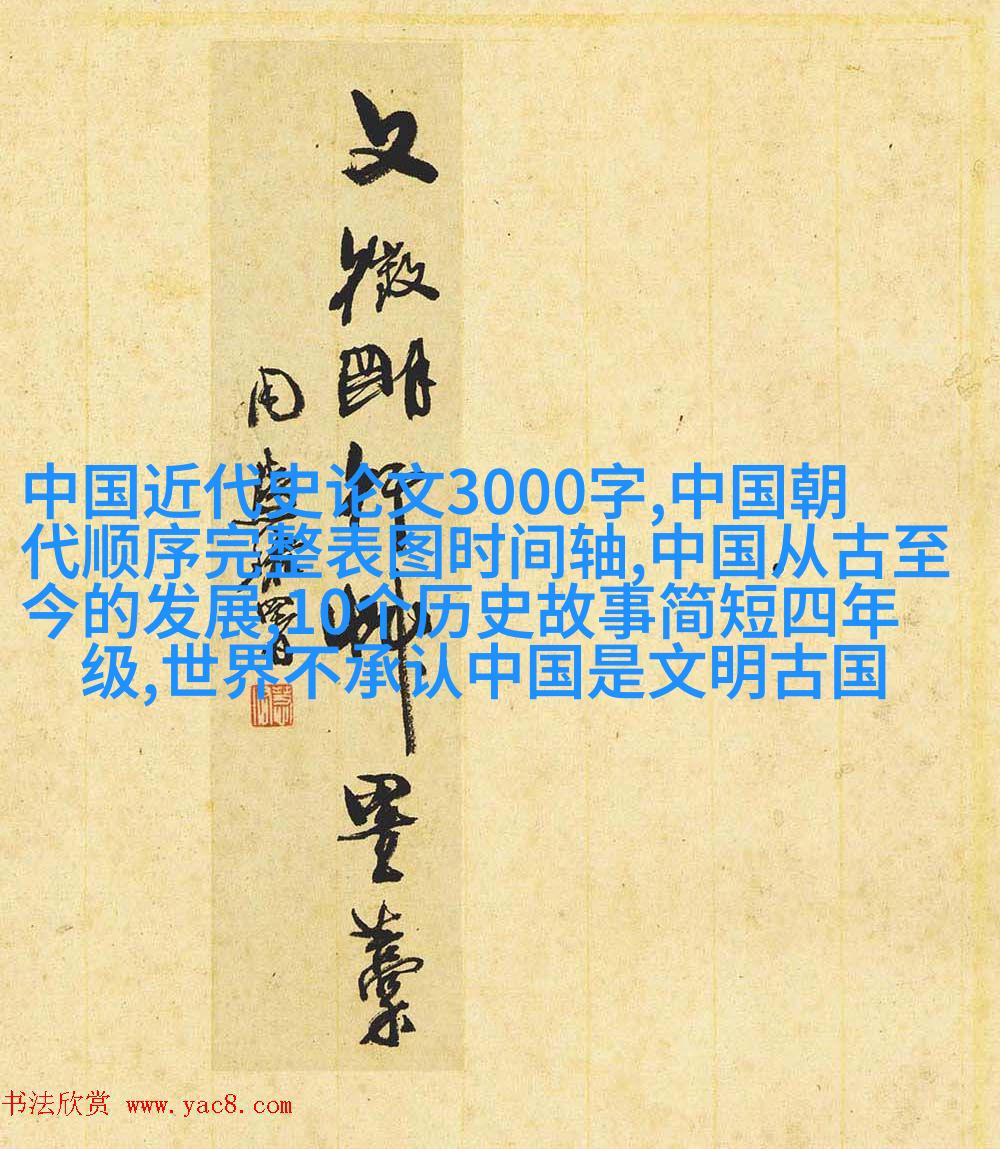 文徵明行艸墨藁
周慧珺署
中国近代史论文3000字,中国朝
代顺序完整表图时间轴,中国从古至
今的发展,10个历史故事简短四年
级,世界不承认中国是文明古国
书法欣赏 www.yac8.com